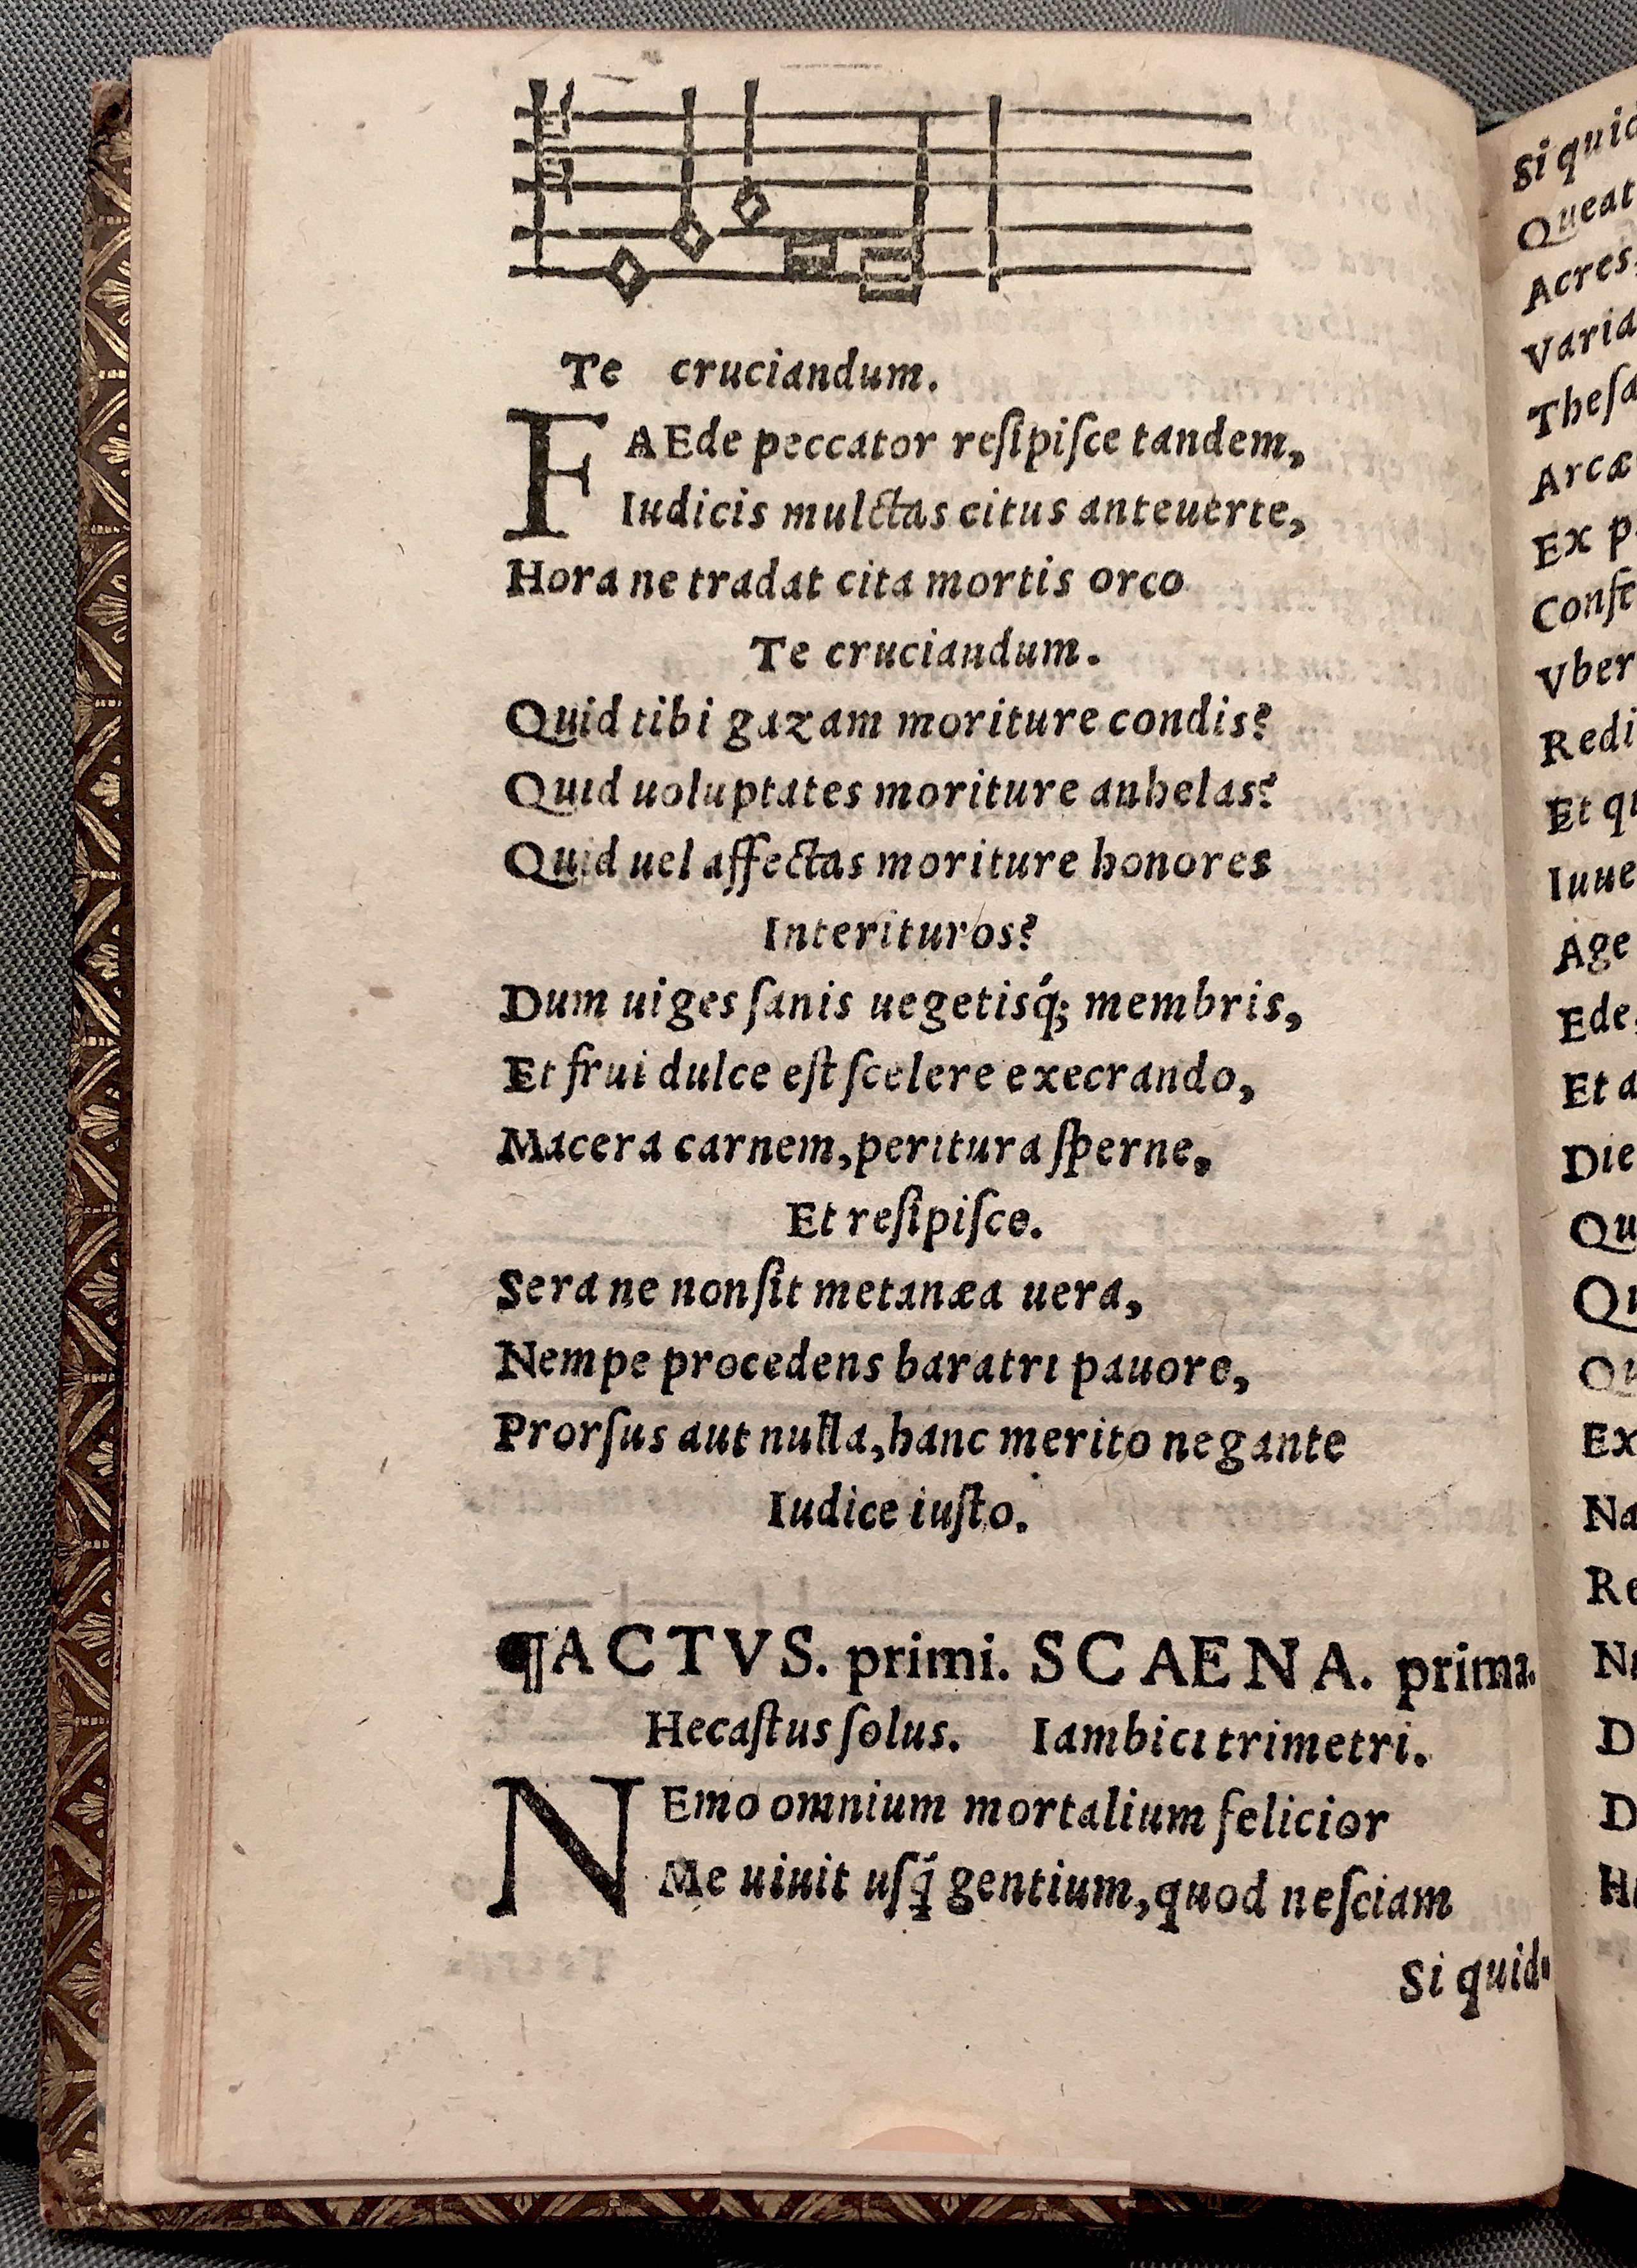 Te cruciandum.
FAEde peccator reſipiſce tandem,
Iudicis mulctas citus anteuerte,
Hora ne tradat cita mortis orco
Te cruciandum.
Quid tibi gazam moriture condis?
Quid uoluptates moriture anhelas?
Quid uel affectas moriture honores
Interituros?
Dum uiges ſanis uegetisq́; membris,
Et frui dulce eſt ſcelere execrando,
Macera carnem, peritura ſperne,
Et reſipiſce.
Sera ne non ſit metanæa uera,
Nempe procedens baratri pauore,
Prorſus aut nulla, hanc merito negante
Iudice iuſto.
¶ACTVS. primi. SCAENA. prima.
Hecaſtus ſolus. Iambici trimetri.
NEmo omnium mortalium felicior
Me uiuit uſq́ gentium, quod neſciam
Si quid
Si quid
Queat
Acres,
Varia
Theſa
Arcæ
Ex p
Conſt
Vber
Redi
Et qu
Iuue
Age
Ede,
Et a
Die
Qu
Qu
Qu
Ex
Na
Re
N
D
D
H